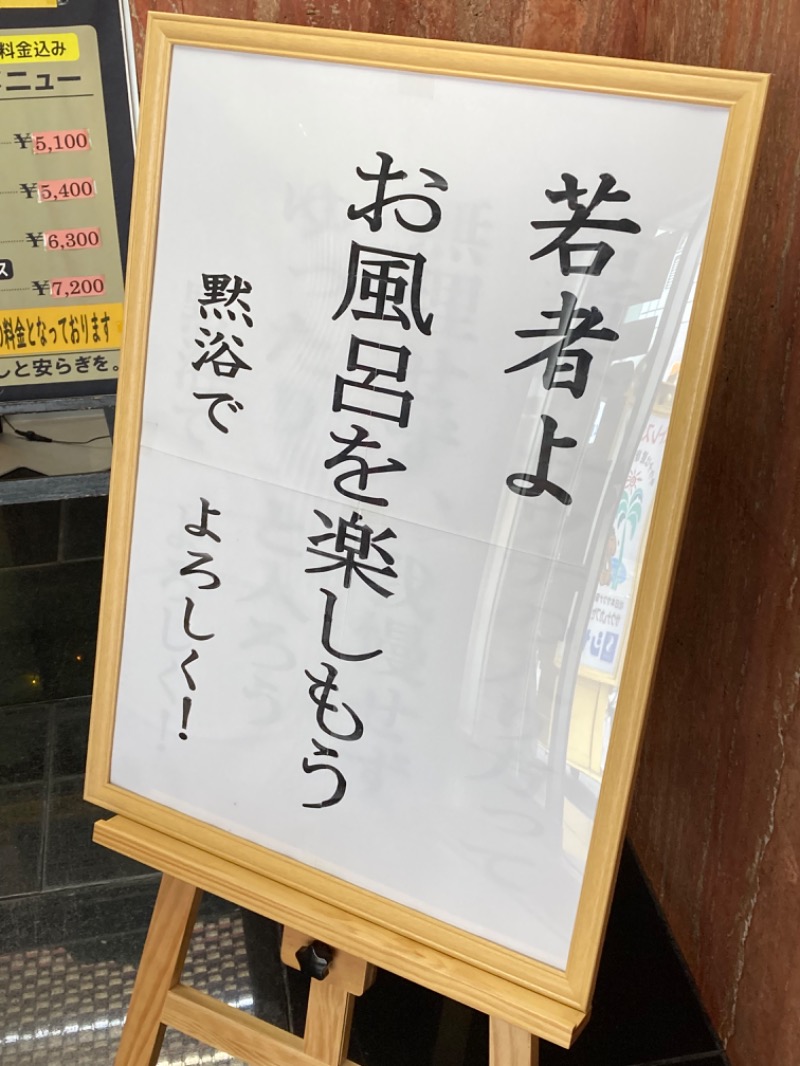 若者よ
お風呂を楽しもう
黙浴で よろしく!
料金込み
メニュー
¥5,100
¥5,400
¥6,300
ス
¥7,200
の料金となっております
しと安らぎを。